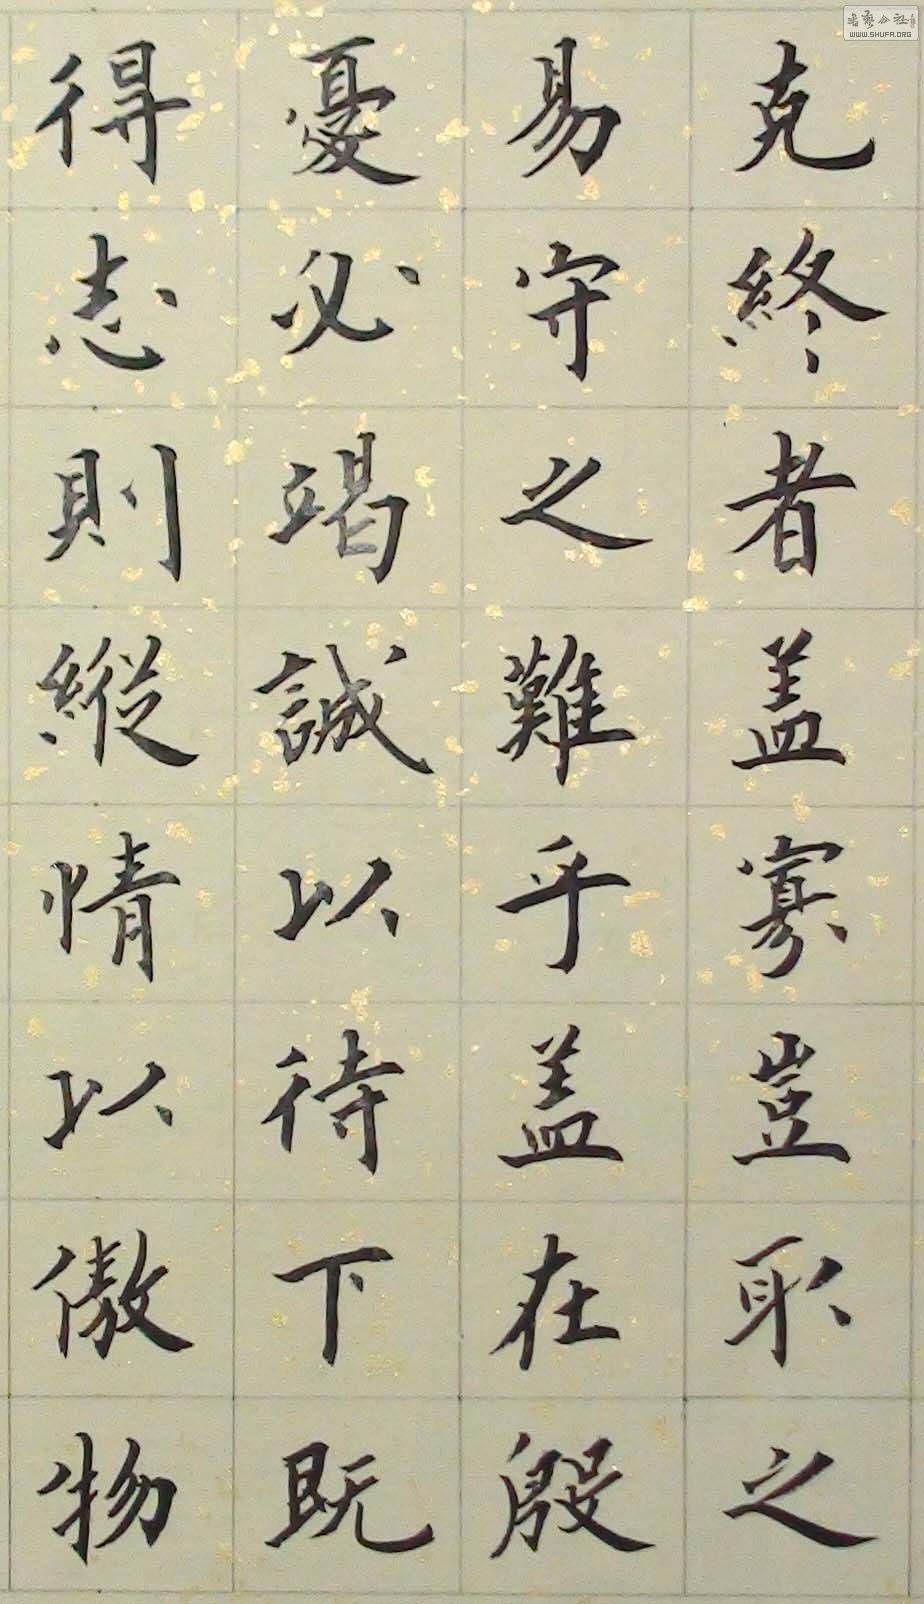 克終者盖寡豈取之
易守之難乎盖在殷
憂必竭誠以待下既
得志則縱情以傲物
WWW.SHUFA.ORG